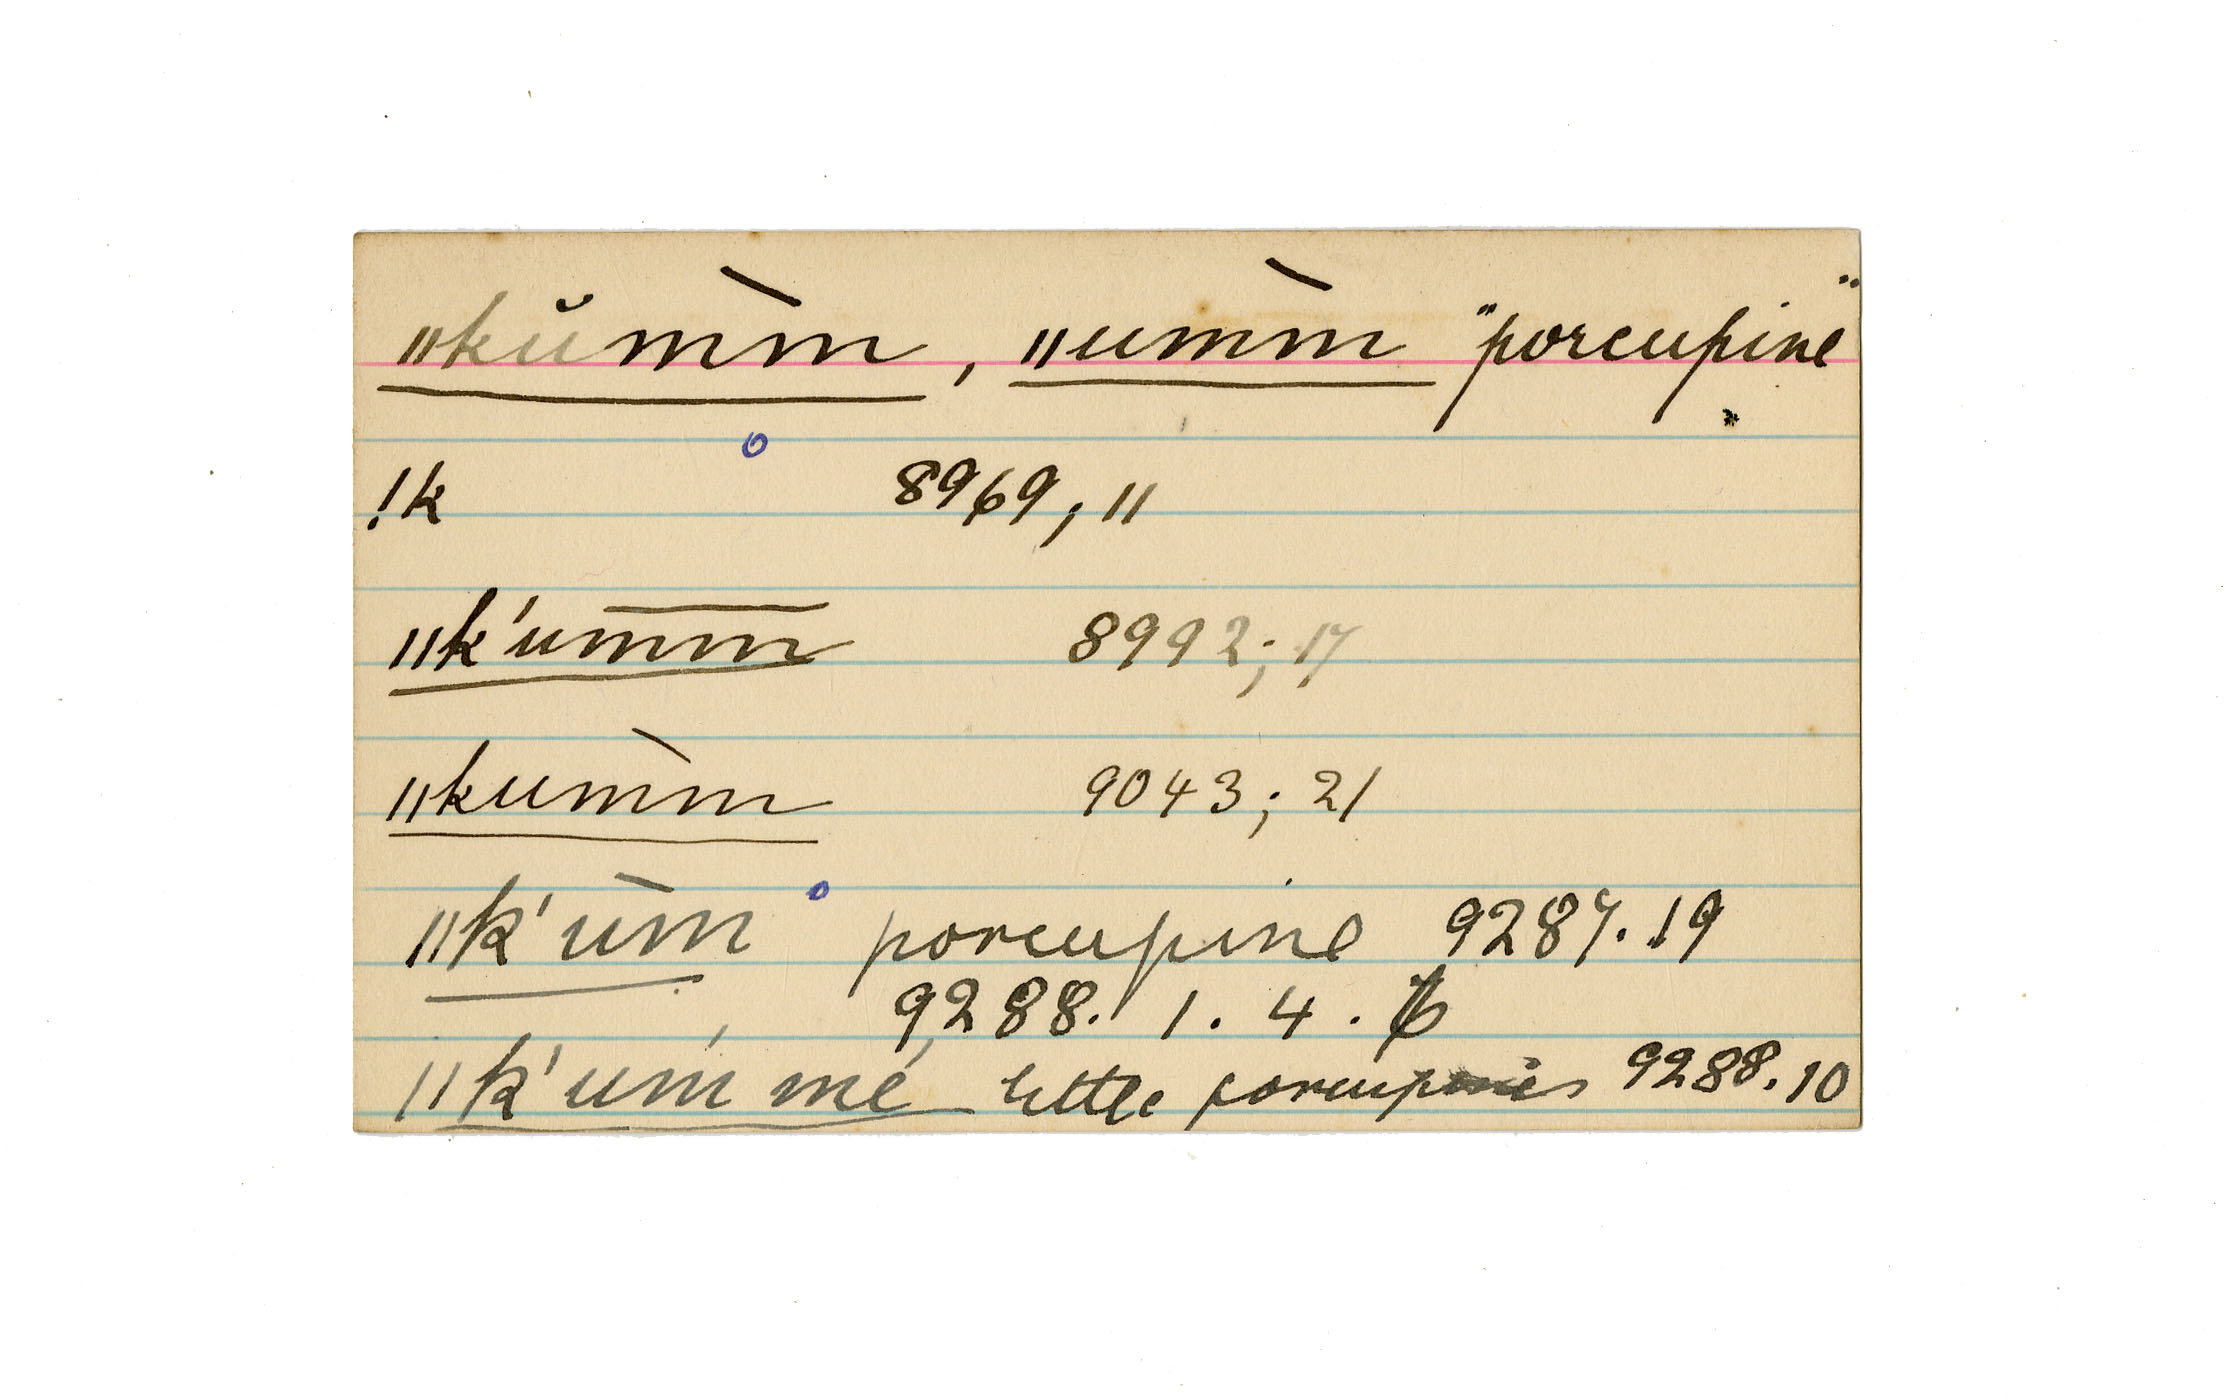 ǁkŭm̀m, ǁum̀m "porcupine"
!k 8969, 11
ǁk'um̄m̄ 8992; 17
ǁkum̀m 9043; 21
ǁk'ùm porcupine 9287.19
9288. 1. 4. 6
ǁk'uḿ mé little porcupines 9288.10